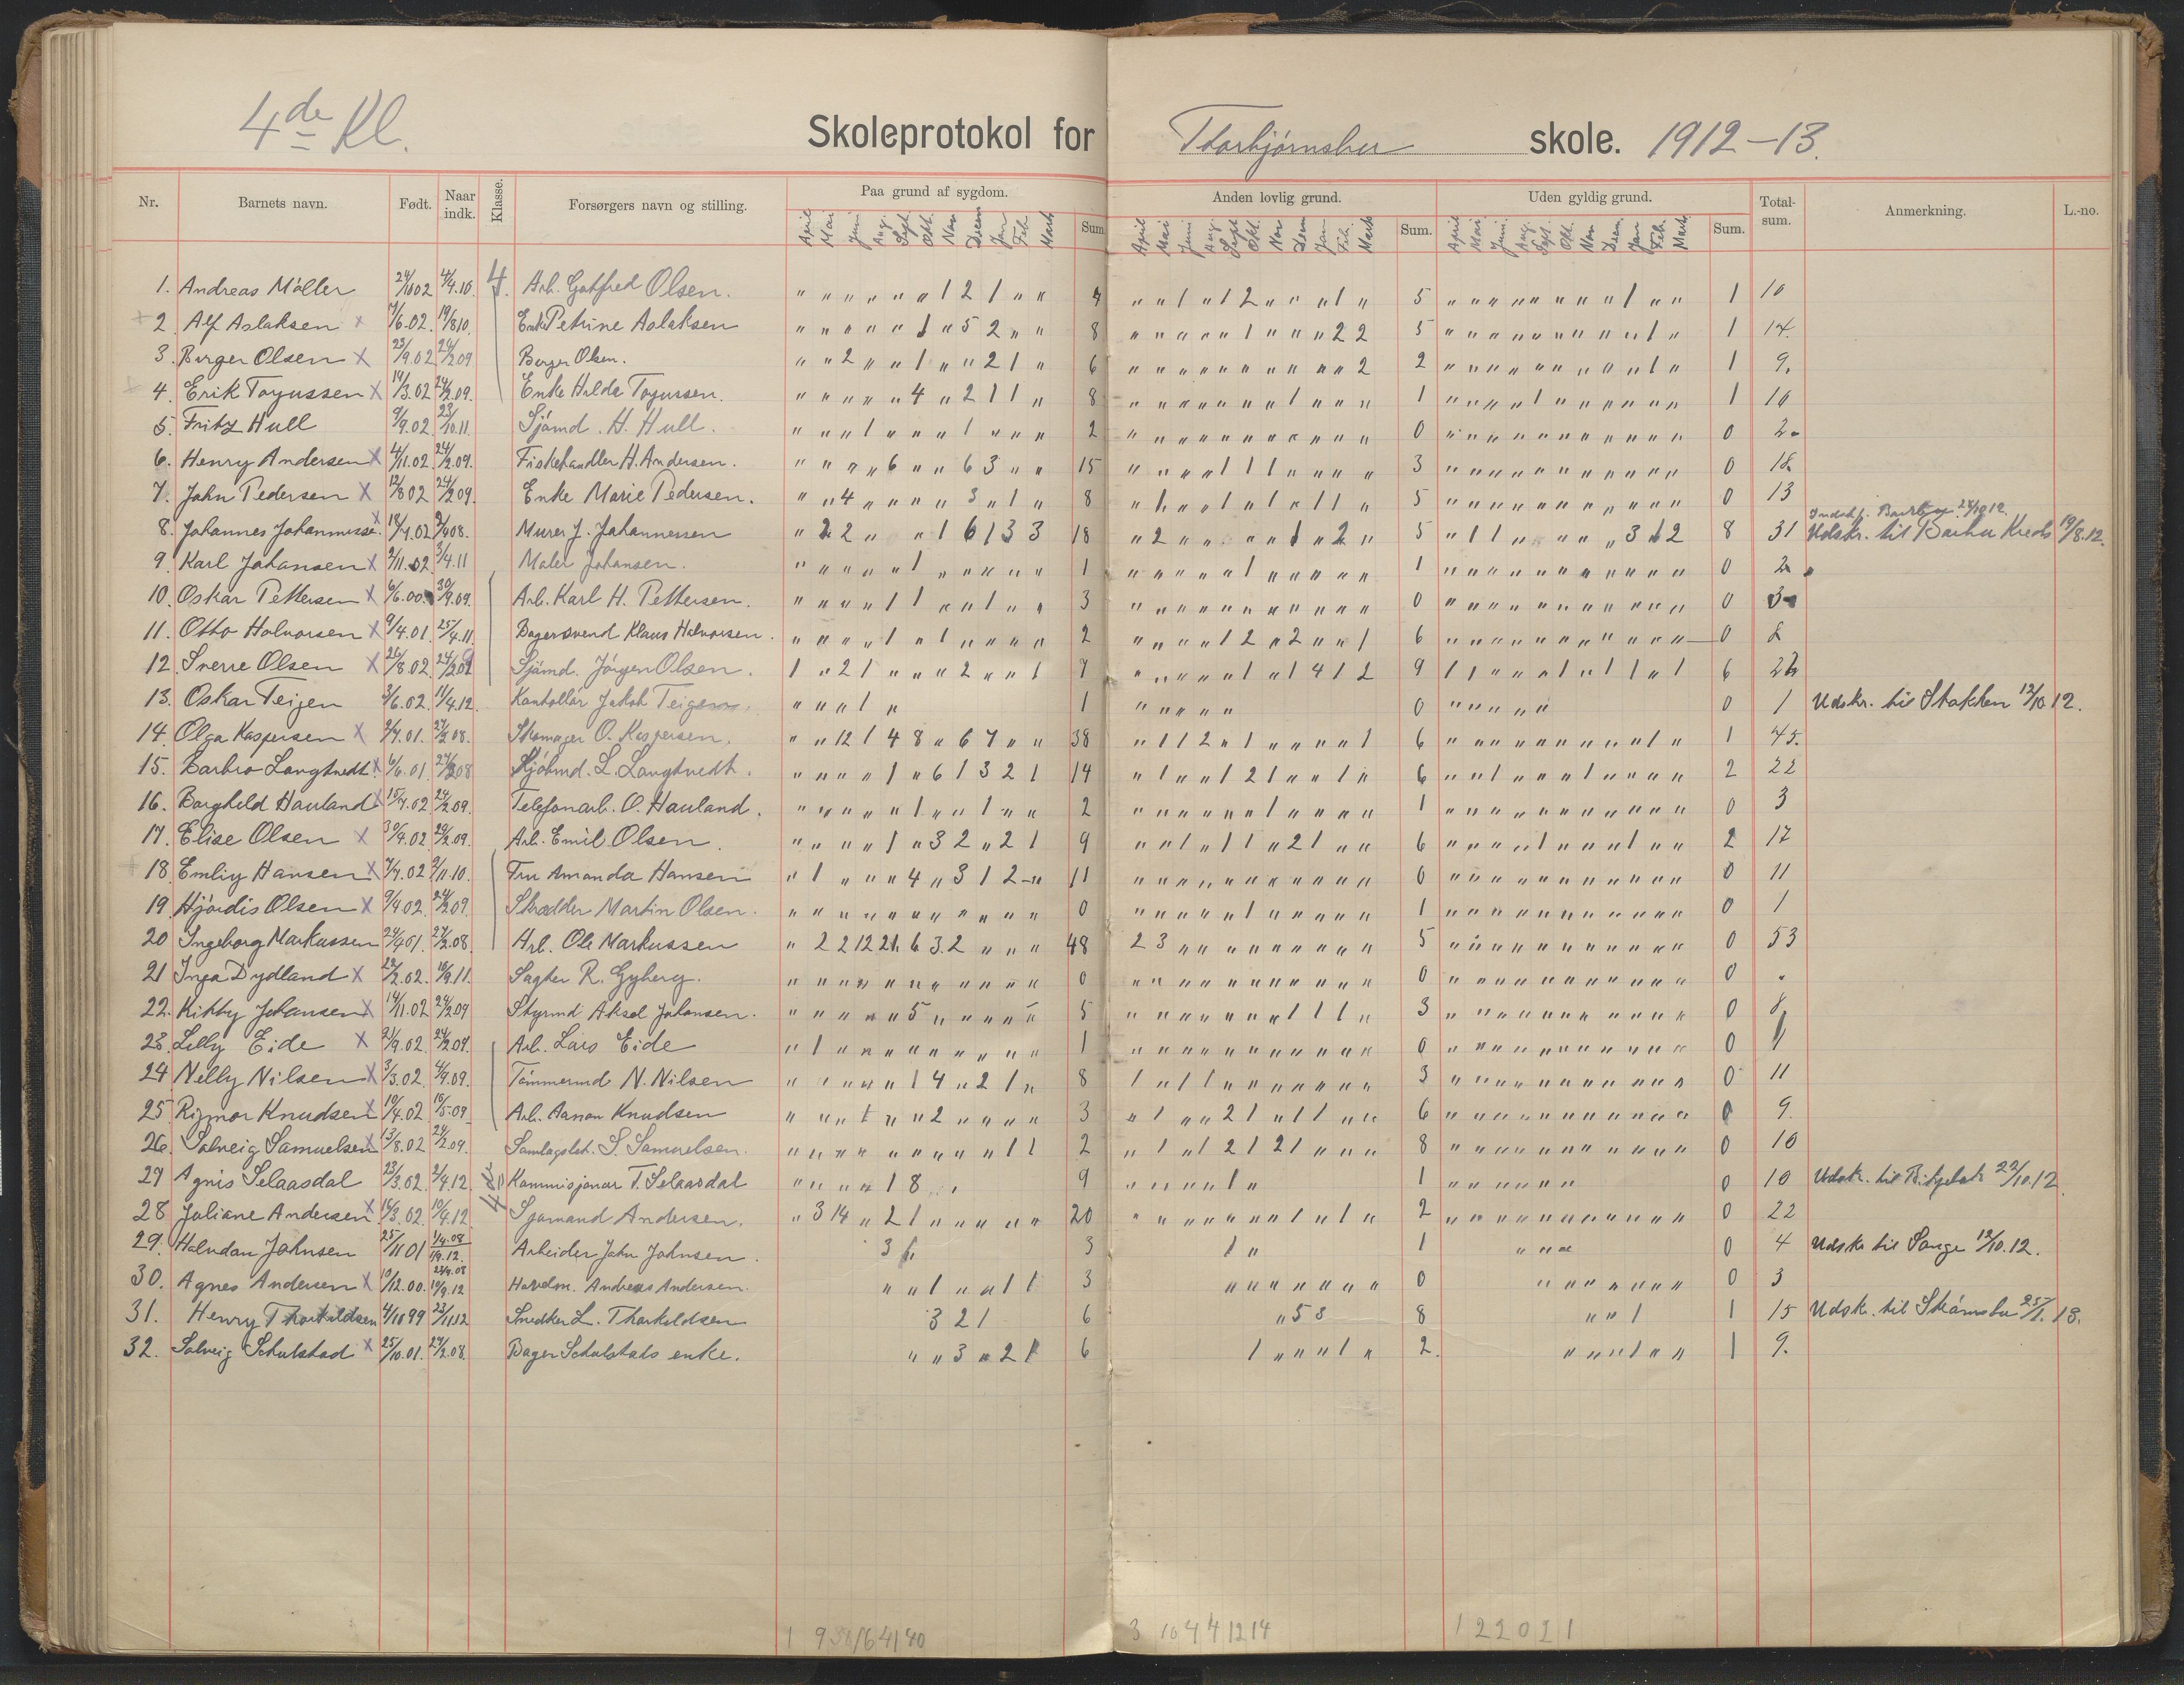 4de Kl. Skoleprotokol for Thorbjørnsbu skole. 1912–13.
Nr. Barnets navn. Født. Naar indk. Klasse. Forsørgers navn og stilling. Paa grund af sygdom. Sum Anden lovlig grund. Sum. Uden gyldig grund. Sum. Total-sum. Anmerkning. L.-no.
April Mai Juni Aug. Sept. Okt. Nov Decem Jan Feb. Mars April Mai Juni Aug Sept Okt. Nov Dcem Jan Feb. Mars April Mai Juni Aug. Sept. Okt. Nov Dcem. Jan Feb. Mars
1. Andreas Møller 4/4.10. 4. Arb. Gotfred Olsen. " " " " " " 1 2 1 " " 4 " " 1 " 1 2 " " " 1 " 5 " " " " " " " " 1 " " 1 10
2. Alf Aslaksen x 7/6.02. 19/8.10. Enke Petrine Aslaksen " " " " " 1 " 5 2 " " 8 " " " " " 1 " " " 2 2 5 " " " " " " " " " 1 " 1 14.
3. Birger Olsen x 23/9.02 24/2.09 Berger Olsen. " " 2 " " 1 " " 2 1 " 6 " " " " " " " " " " 2 2 " " " " " " " " " 1 " 1 9.
4. Erik Togussen x 14/3.02 24/2.09. Enke Hilda Togussen. " " " " " 4 " 2 1 1 " 8 " " " " " " " 1 " " " 1 " " " " 1 " " " " " " 1 10
5. Fritz Hull 9/9.02. 23/10.11. Sjømd. H. Hull. " " " 1 " " " 1 " " " 2 " " " " " " " " " " " 0 " " " " " " " " " " " 0 2
6. Henry Andersen x 4/11.02. 24/2.09. Fiskehandler H. Andersen. " " " " 6 " " 6 3 " " 15 " " " " 1 1 1 " " " " 3 " " " " " " " " " " " 0 18
7. John Pedersen x 12/8.02 24/2.09. Enke Marie Pedersen. " " 4 " " " " 3 " 1 " 8 " 1 " " 1 " 1 " 1 1 " 5 " " " " " " " " " " " 0 13
Indskr. 24/10 12.
8. Johannes Johannessen x Murer J. Johannessen " 2 2 " " 1 6 1 3 3 18 " 2 " " " " " 1 " 2 " 5 " 1 1 " " " " " 3 1 2 8 31 Udskr. til Barbu Kreds 19/8.12.
9. Karl Johansen x 2/11.02. 3/4.11 Maler Johansen. " " " " " 1 " " " " " 1 " " " " " 1 " " " " " 1 " " " " " " " " " " " 0 2
10. Oskar Pettersen x 6/6.00. 30/9.09. Arb. Karl H. Pettersen. " " " " 1 1 " " 1 " " 3 " " " " " " " " " " " 0 " " " " " " " " " " " 0 3
11. Otto Halvorsen x 9/4.01. 25/4.11. Bagersvend Klaus Halvorsen. " " " " 1 " 1 " " " " 2 " " " " 1 2 " 2 " " 1 6 " " " " " " " " " " " 0 8
12. Sverre Olsen x 26/8.02. Sjømd. Jørgen Olsen. 1 " 2 1 " " " 2 " " 1 7 " " " " " 1 " 1 4 1 2 9 1 1 " " " 1 " 1 1 " 1 6
13. Oskar Teigen 3/6.02. 11/4.12. Kontollør Jakob Teigen. " " " 1 " 1 " " " " " 0 " " " " " 0 1 Udskr. til Stokken 12/10.12.
14. Olga Kaspersen x 27/2.08. Skomager O. Kaspersen. " " 12 1 4 8 " 6 7 " " 38 " 1 1 2 " 1 " " " " 1 6 " " " " " " " " " 1 " 1 45.
15. Barbro Langtvedt x 6/6.01. 27/2.08 Sjømd. L. Langtvedt. " " " " 1 " 6 1 3 2 1 14 " 1 " " 1 2 1 " " 1 " 6 " " 1 " " " 1 " " " " 2 22
16. Borghild Hauland x 15/4.02 24/2.09. Telefonarb. O. Hauland. " " " " " 1 " " 1 " " 2 " " " " " " 1 " " " " 1 " " " " " " " " " " " 0 3
17. Elise Olsen x 30/4.02. 24/2.09. Arb. Emil Olsen. " " " " 1 " 3 2 " 2 1 9 " " 1 " 1 1 " 2 1 " " 6 " " " " 1 " " " 1 " " 2 17
18. Emliy Hansen x 7/7.02 2/11.10. Fru Amanda Hansen " 1 " " " 4 " 3 1 2 " 11 " " " " " " " " " " " 0 " " " " " " " " " " " 0 11
19. Hjørdis Olsen x 9/4.02. 24/2.09. Skrædder Martin Olsen. " " " " " " " " " " " 0 " " " " " 1 " " " " " 1 " " " " " " " " " " " 0 1
20 Ingeborg Markussen 27/2.08. Arb. Ole Markussen " 2 2 12 21 6 3 2 " " " 48 2 3 " " " " " " " " " 5 " " " " " " " " " " " 0 53
21 Inga Dydland x Sagber R. Gyberg. " " " " " " " " " " " 0 " " " " " " " " " " " 0 " " " " " " " " " " " 0 "
22. Kitty Johansen x 14/11.02 24/2.09 Styrmd Aksel Johansen. " " " " " 5 " " " " " 5 " " " " " " " 1 1 1 " 3 " " " " " " " " " " " 0 8
23. Lilly Eide x 21/9.02. 24/2.09. Arb. Lars Eide " 1 " " " " " " " " " 1 " " " " " " " " " " " 0 " " " " " " " " " " " 0 1
24 Nelly Nilsen x 3/3.02. 4/9.09. Tømmermd N. Nilsen " " " " " 1 4 " 2 1 " 8 1 " 1 1 " " " " " " " 3 " " " " " " " " " " " 0 11
25. Rigmor Knudsen x 10/4.02 16/5.09 Arb. Aanon Knudsen " " " 1 " " 2 " " " " 3 " 1 " " 2 1 " 1 1 " " 6 " " " " " " " " " " " 0 9.
26. Solveig Samuelsen x 13/8.02 24/2.09. Samlagsbst. S. Samuelsen. " " " " " " " " " 1 1 2 " 1 " 1 2 1 2 1 " " " 8 " " " " " " " " " " " 0 10
27 Agnis Selaasdal 23/3.02. 2/4.12. Kommisjonær T. Selaasdal " " " " 1 8 9 " " " " 1 " 1 " " " " " " 0 10 Udskr. til 22/10.12.
28 Juliane Andersen x 16/3.02. 10/4.12. Sjømand Andersen. " 3 14 " 2 1 " " " " " 20 " " " " " " 1 " 1 " 2 " " " " " " " " " " " 0 22
29. Halvdan Johnsen 25/11 01 1/4.08 1/9.12. Arbeider John Johnsen. 3 " 3 1 " 1 " " " 0 4 Udskr til Songe 12/10.12.
30. Agnes Andersen x 10/12.00. 19/9.12 Havdm. Andreas Andersen. " " 1 " " 1 1 3 " " " " " " " 0 " " " " " " " 0 3
31. Henry Thorkildsen 4/10 99 23/11 12 Snedker L. Thorkildsen 3 2 1 6 " 5 3 8 " " 1 1 15 Udsk. til Strømsbu 25/1. 13.
32. Solveig Schulstad x 25/10.01. 27/2.08. Bager Schulstads enke. " " 3 " 2 1 6 1 " " " 1 " 2. " " " 1 " " 1 9.
3 10 4 4 12 14